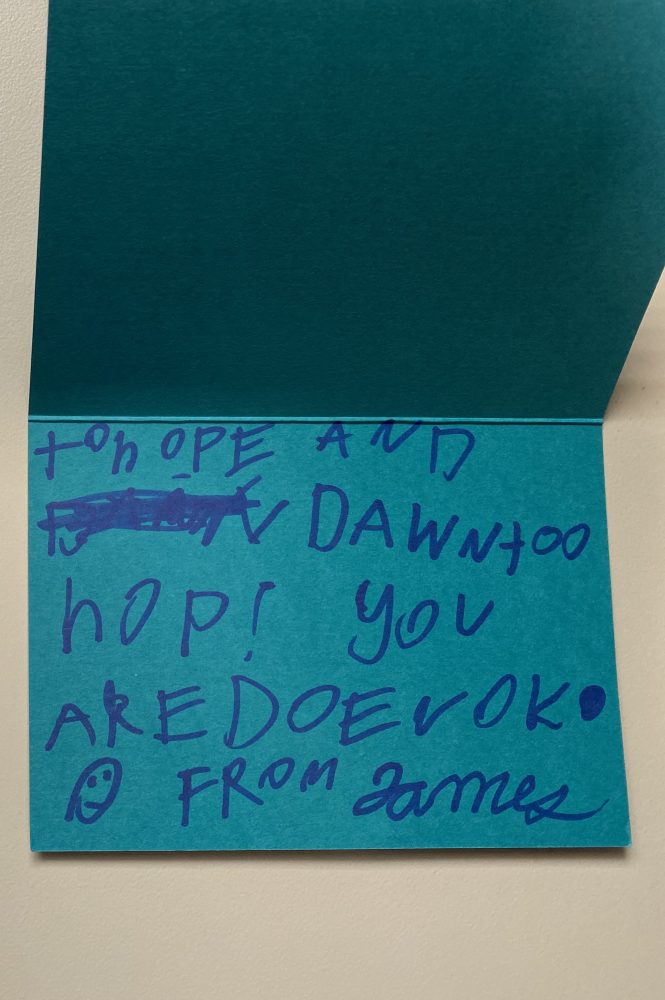 tohOPE AND
DAWNtoo
hOP! you
AREDOEVOK.
FROM James